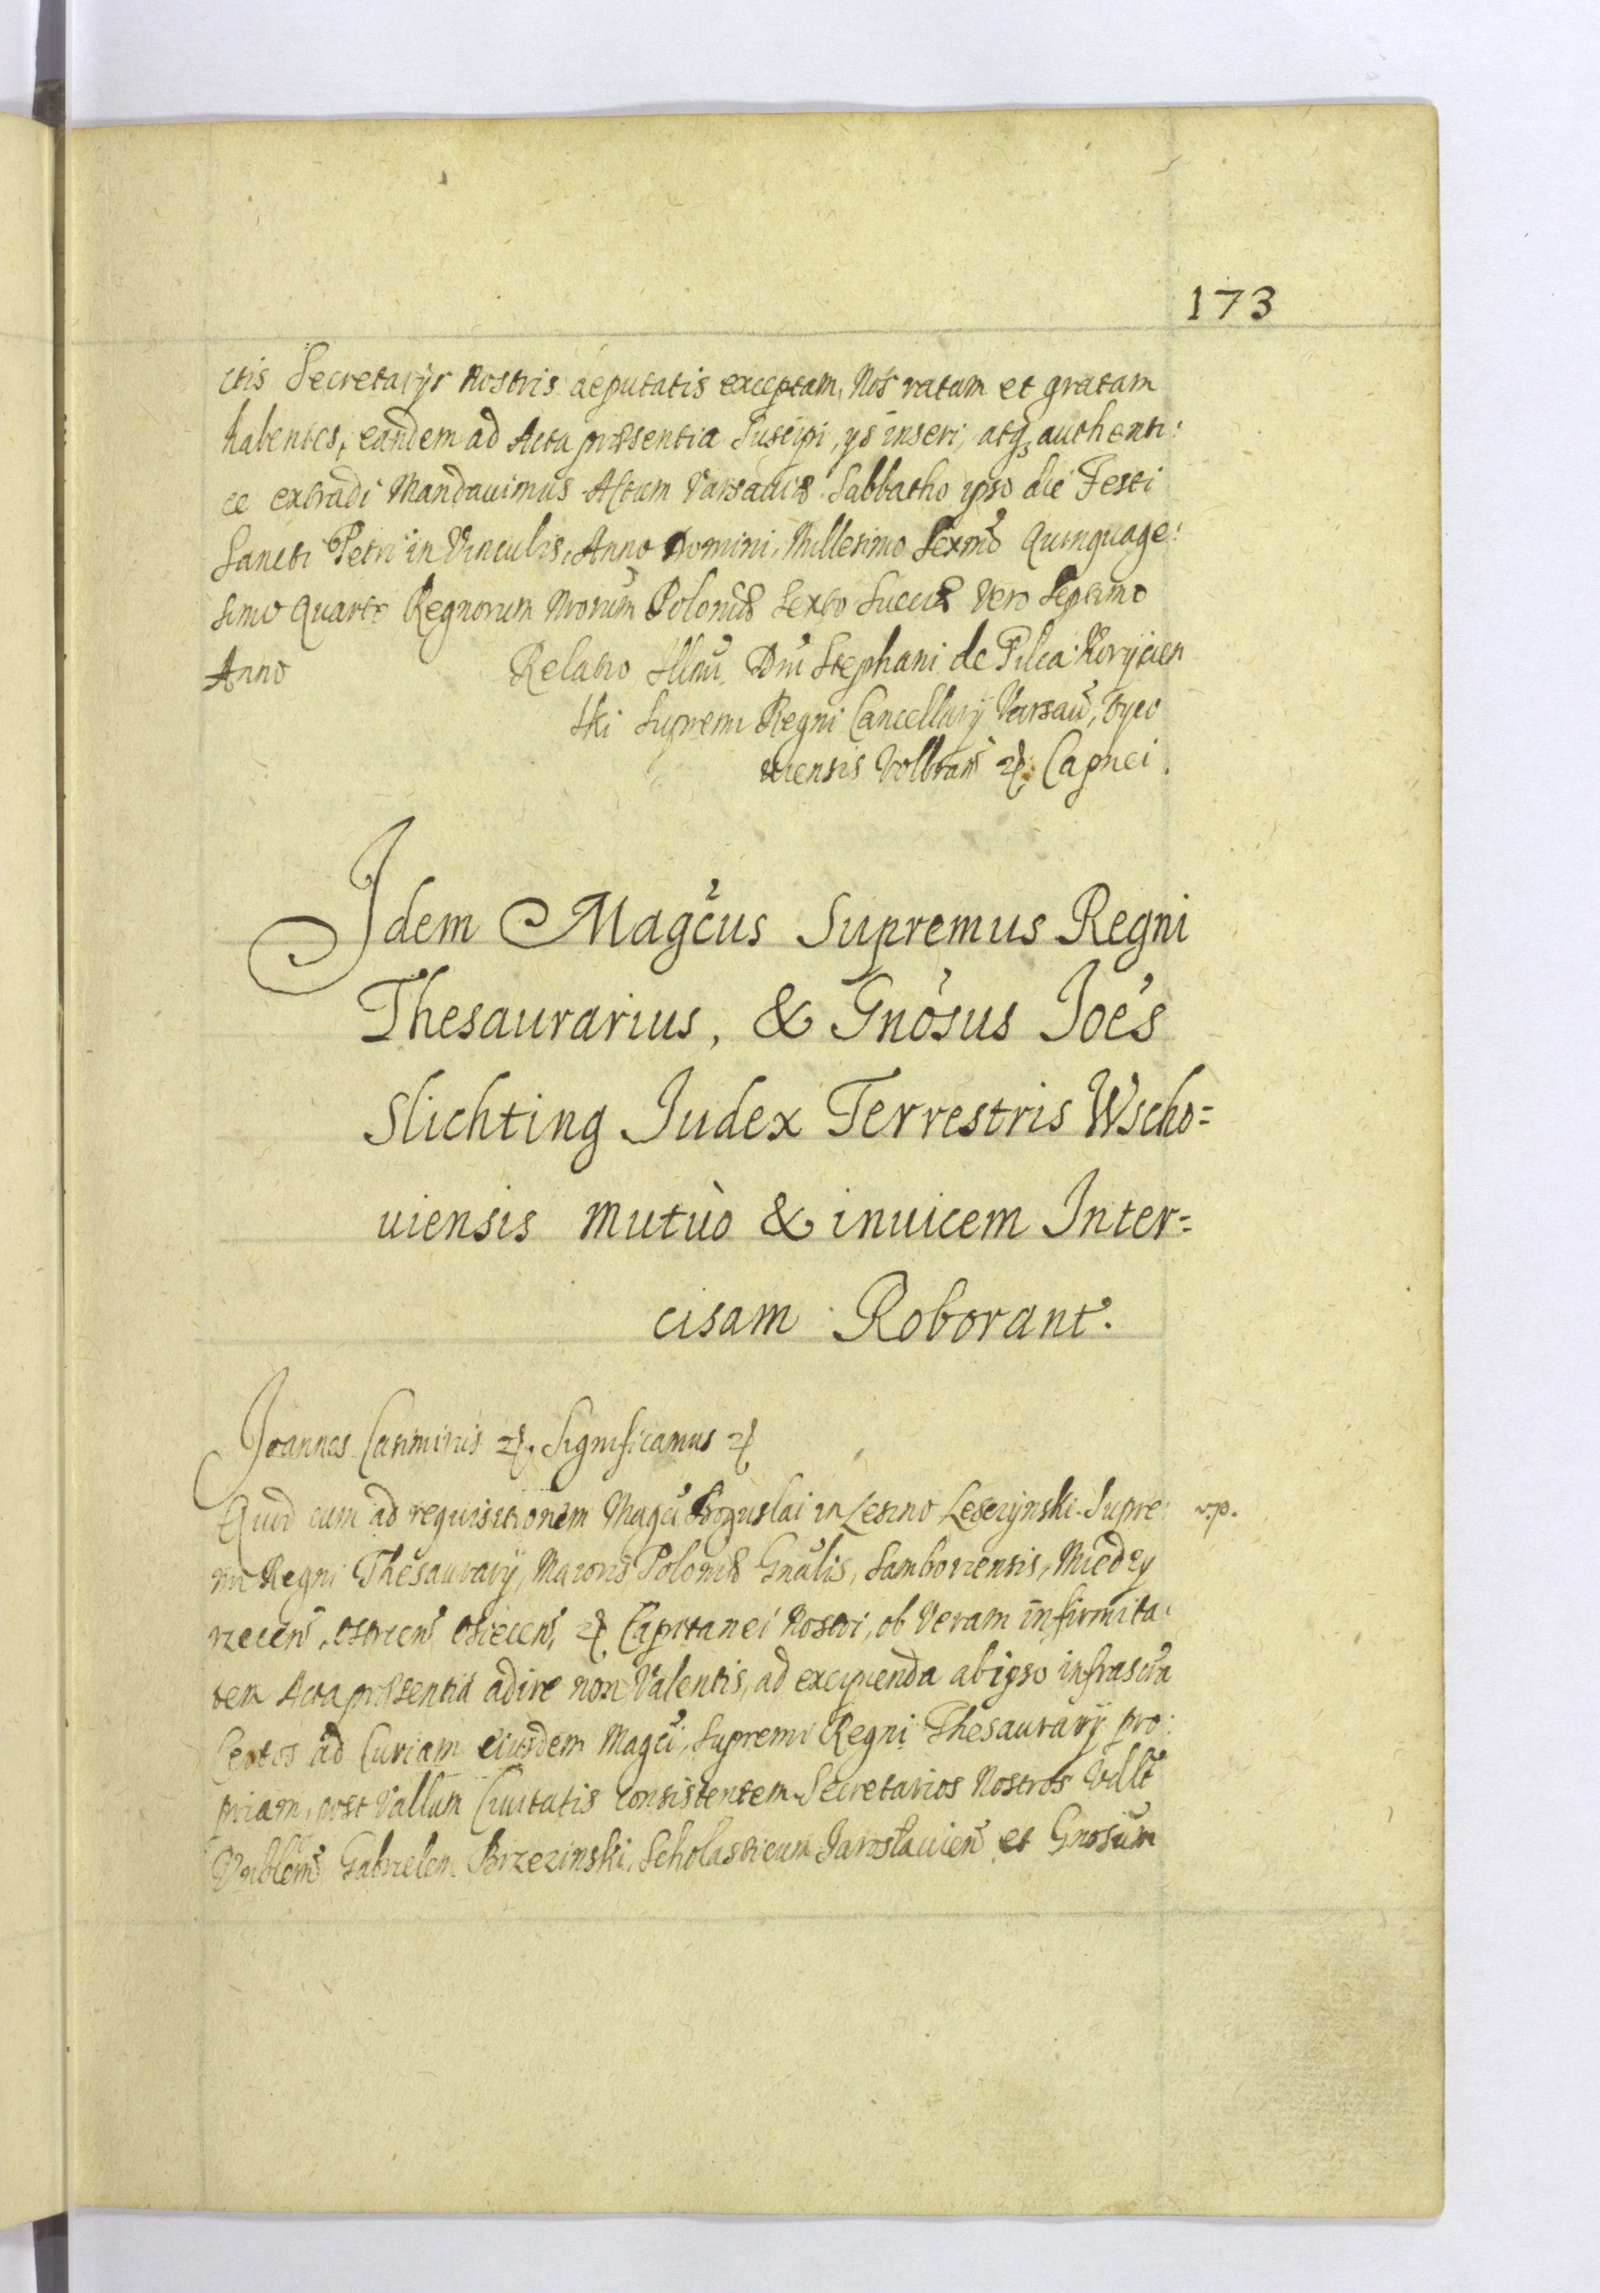 173
ctis Secretarijs Nostris deputatis exceptam, Nos ratam et gratam
habentes, eandem ad Acta præsentia Suscipi, ys inseri, atq3 authenti:
ce extradi Mandavimus Actum Varsaviæ Sabbatho ipso die Festi
Sancti Petri in Vinculis, Anno Domini, Millesimo Sexmo Quinquage:
simo Quarto Regnorum Nrorum Poloniæ Sexto Sueciæ Vero Septimo
Anno Relatio Illmi Dni Stephani de Pilca Korycien
ski Supremi Regni Cancellarij Varsav, Oyco
viensis Volbram &. Capnei.
Idem Magcus Supremus Regni
Thesaurarius, & Gnosus Joes
Slichting Judex Terrestris Wscho=
uiensis mutuò & inuicem Inter=
cisam Roborant.
Joannes Casimirus &. Significamus &
Quod cum ad requisitionem Magci Boguslai in Leszno Lesczynski Supre v.p.
mi Regni Thesaurarij, Maioris Poloniæ Gnalis, Samboriensis, Miedzy
rzecen, Ostricen Osiecen, & Capitanei Nostri, ob Veram infirmita:
tem Acta præsentia adire non Valentis, ad excipienda ab ipso infrascra
Certos ad Curiam eiusdem Magci, Supremi Regni Thesaurarij pro:
priam, post Vallum Civitatis consistentem Secretarios Nostros Vdlt
Vnblem Gabrielem Brzezinski, Scholasticum Jaroslavien et Gnosum